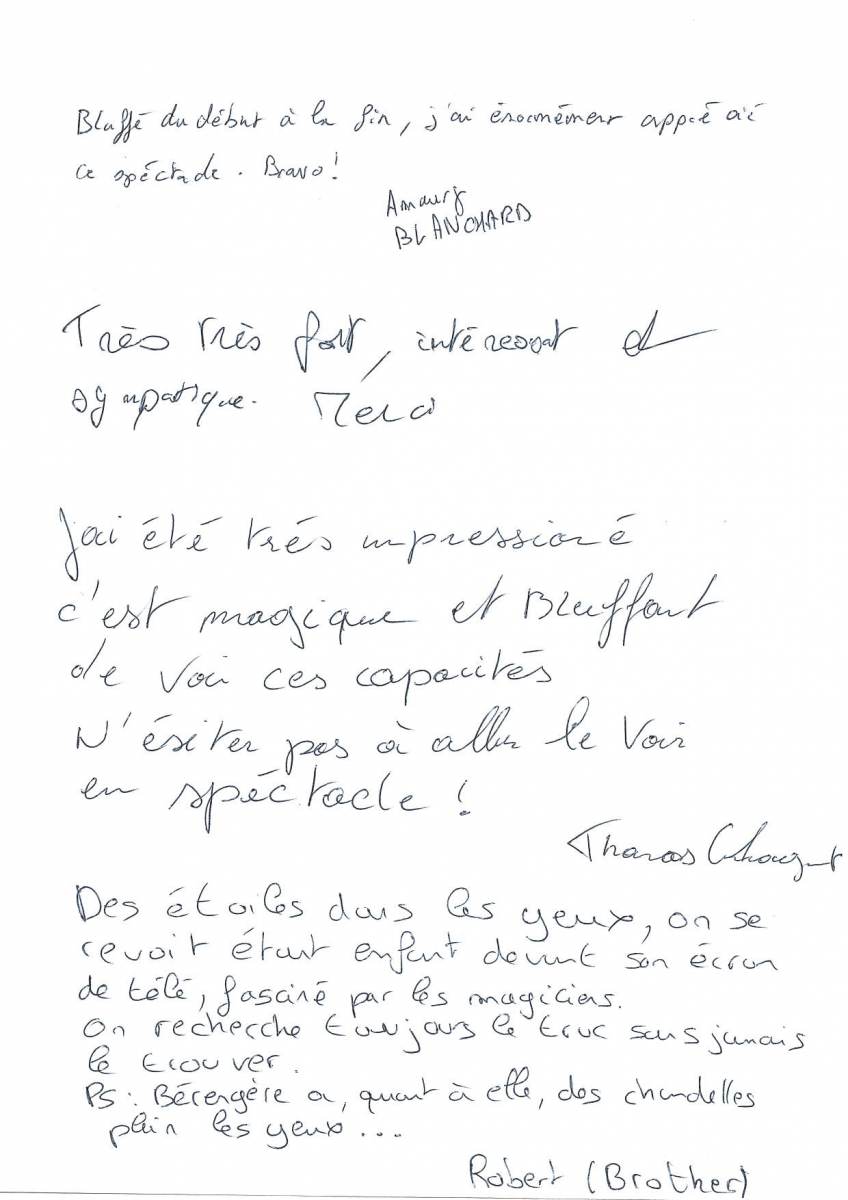 Bluffé du début à la fin, j'ai énormément apprécié
ce spéctacle. Bravo!
Amaury
BLANCHARD
Très très fort, intéressat et
sympatique. Merci
J'ai été trés impressioné
c'est magique et Bluffant
de voir ces capacités
N'ésiter pas à aller le voir
en spéctacle !
Des étoiles dans les yeux, on se
revoit étant enfant devant son écran
de télé, fasciné par les magiciens.
On recherche toujours le truc sans jamais
le trouver.
PS : Bérengère a, quant à elle, des chandelles
plein les yeux...
Robert (Brother)